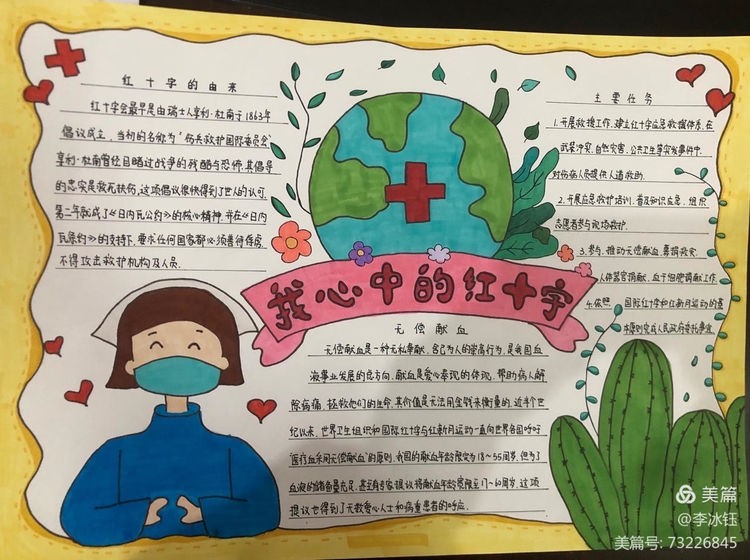 红十字的由来
红十字会最早是由瑞士人亨利·杜南于1863年
倡议成立,当初的名称为"伤兵救护国际委员会"
亨利·杜南曾经目睹过战争的残酷与恐怖,其倡导
的忠实是救死扶伤,这项倡议很快得到了世人的认可,
第二年就成了《日内瓦公约》的核心精神,并在《日内
瓦条约》的支持下,要求任何国家都必须善待俘虏,
不得攻击救护机构及人员.
主要任务
1.开展救援工作,建立红十字应急救援体系.在
武装冲突,自然灾害,公共卫生等突发事件中,
对伤病人员提供人道救助.
2.开展应急救护培训,普及知识应急,组织
志愿者参与现场救护.
3.参与,推动无偿献血,募捐救灾
人体器官捐献,血干细胞捐献工作
4.依照 国际红十字和红新月运动的基
本原则完成人民政府委托事宜
我心中的红十字
无偿献血
无偿献血是一种无私奉献,舍己为人的崇高行为,是我国血
液事业发展的总方向,献血是爱心奉现的体现,帮助病人解
除病痛,拯救他们的生命,其价值是无法用金钱来衡量的,近半个世
纪以来,世界卫生组织和国际红十字与红新月运动一直向世界各国呼吁
"医疗血采用无偿献血"的原则,我国的献血年龄限定为18~55周岁,但为了
血液的储备量充足,甚至有专家提议将献血年龄宽限至17~60周岁,这项
提议也得到了无数爱心人士和病重患者的呼应.
美篇
@李冰钰
美篇号: 73226845